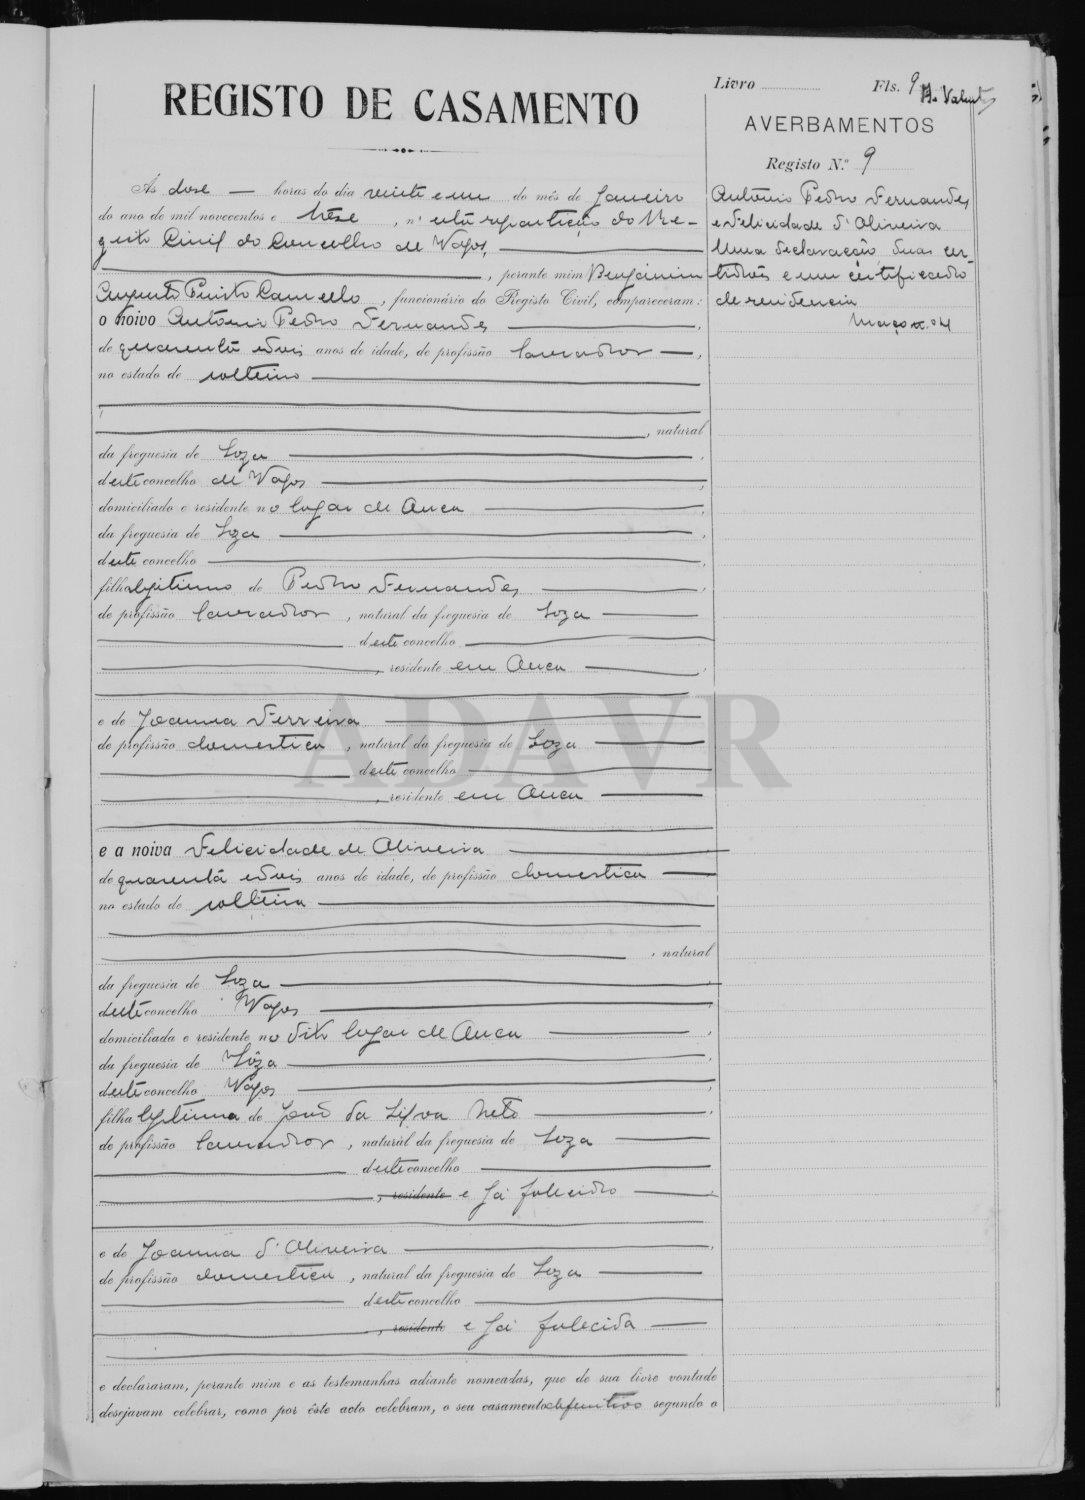 Livro Fls. 9
A. Valente
REGISTO DE CASAMENTO
AVERBAMENTOS
Registo N.º 9
António Pedro Fernandes
e Felicidade d'Oliveira
Uma declaração, duas cer-
tidões e um certificado
de residencia
Março
Ás dose horas do dia vinte e um do mês de Janeiro
do ano de mil novecentos e trêse, n'esta repartição do Re-
gisto Civil do Concelho de Vagos,
, perante mim Benjamim
Augusto Camello, funcionário do Registo Civil, compareceram:
o noivo António Pedro Fernandes
de quarenta e dois anos de idade, de profissão lavrador,
no estado de solteiro
, natural
da freguesia de Soza,
deste concelho de Vagos
domiciliado e residente no lugar de Ouca
da freguesia de Soza
deste concelho
filho legitimo de Pedro Fernandes
de profissão lavrador, natural da freguesia de Soza
deste concelho
, residente em Ouca
e de Joanna Ferreira
de profissão domestica, natural da freguesia de Soza
deste concelho
, residente em Ouca
ADAVR
e a noiva Felicidade de Oliveira
de quarenta e dois anos de idade, de profissão domestica
no estado de solteira
, natural
da freguesia de Soza
deste concelho Vagos
domiciliada e residente no dito lugar de Ouca
da freguesia de Sôza
deste concelho Vagos
filha legitima de José da Silva Neto
de profissão lavrador, natural da freguesia de Soza
deste concelho
, residente e já falecido
e de Joanna d'Oliveira
de profissão domestica, natural da freguesia de Soza
deste concelho
, residente e já falecida
e declararam, perante mim e as testemunhas adiante nomeadas, que de sua livre vontade
desejavam celebrar, como por êste acto celebram, o seu casamento definitivo segundo o